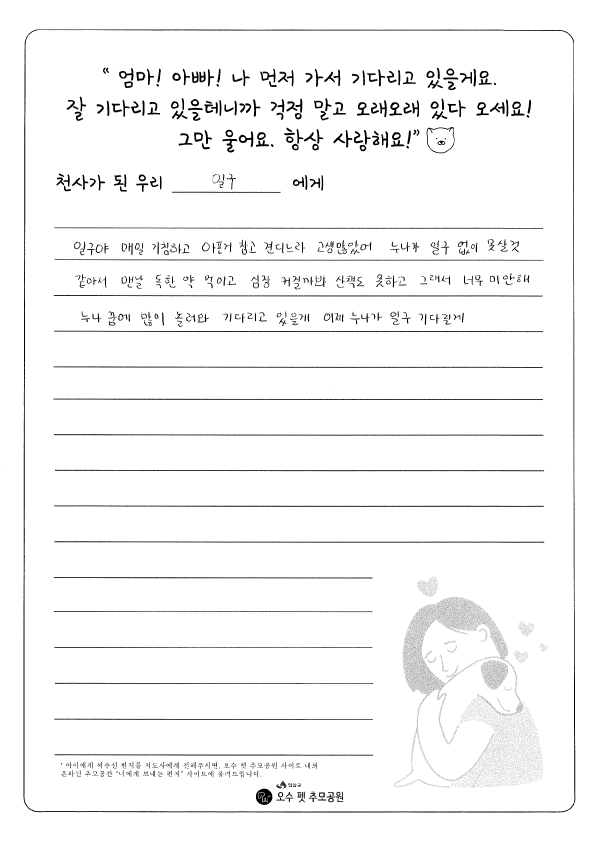 “ 엄마! 아빠! 나 먼저 가서 기다리고 있을게요.
잘 기다리고 있을테니까 걱정 말고 오래오래 있다 오세요!
그만 울어요. 항상 사랑해요!”
천사가 된 우리 일구 에게
일구야 매일 기침하고 아픈거 참고 견디느라 고생많았어 누나가 일구 없이 못살것
같아서 맨날 독한 약 먹이고 심장 커질까봐 산책도 못하고 그래서 너무 미안해
누나 꿈에 많이 놀러와 기다리고 있을게 이제 누나가 일구 기다릴게
* 아이에게 써주신 편지를 지도사에게 전해주시면, 오수 펫 추모공원 사이트 내의
온라인 추모공간 "너에게 보내는 편지" 사이트에 올려드립니다.
임실군
오수 펫 추모공원